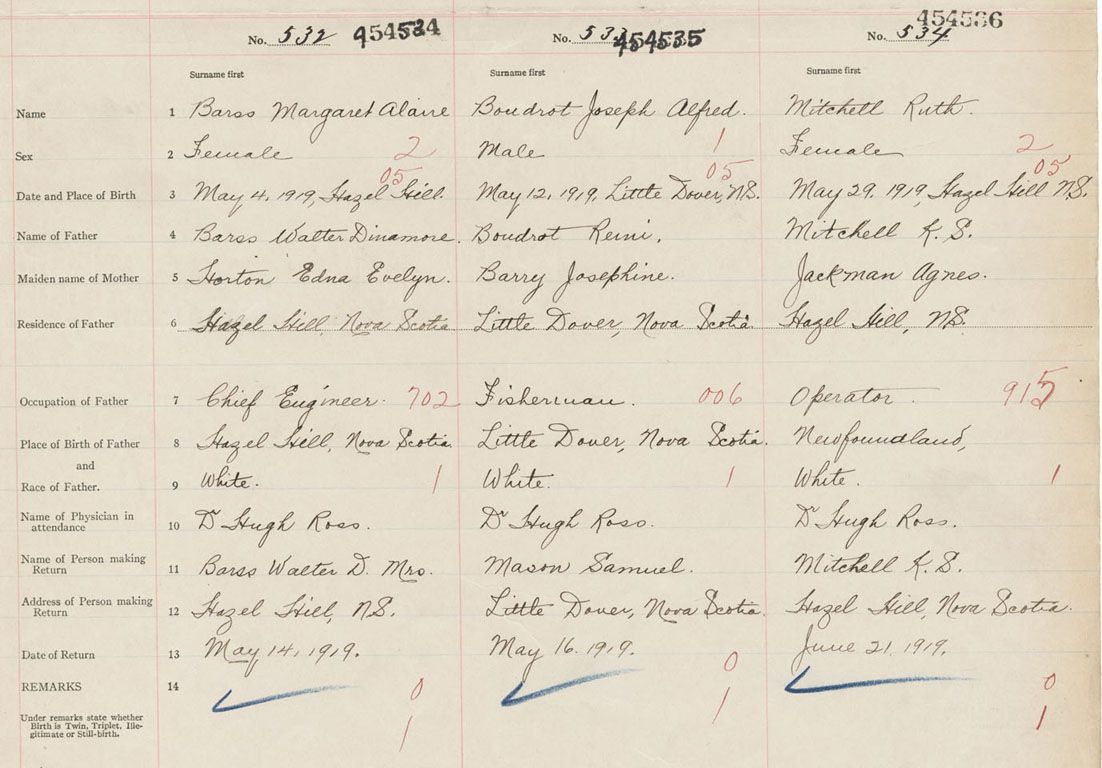 No. 532 454534 No. 533 454535 No. 534 454536
Surname first Surname first Surname first
Name 1 Barss Margaret Alaire Boudrot Joseph Alfred. Mitchell Ruth.
Sex 2 Female 2 Male 1 Female 2
05 05 05
Date and Place of Birth 3 May 4, 1919, Hazel Hill. May 12, 1919, Little Dover, N.S. May 29, 1919, Hazel Hill N.S.
Name of Father 4 Barss Walter Dinamore. Boudrot Remi. Mitchell K. S.
Maiden name of Mother 5 Horton Edna Evelyn. Barry Josephine. Jackman Agnes.
Residence of Father 6 Hazel Hill, Nova Scotia Little Dover, Nova Scotia Hazel Hill, N.S.
Occupation of Father 7 Chief Engineer. 702 Fisherman. 006 Operator. 915
Place of Birth of Father 8 Hazel Hill, Nova Scotia. Little Dover, Nova Scotia. Newfoundland,
and
Race of Father. 9 White. 1 White. 1 White. 1
Name of Physician in
attendance 10 Dr Hugh Ross. Dr Hugh Ross. Dr Hugh Ross.
Name of Person making
Return 11 Barss Walter D. Mrs. Mason Samuel. Mitchell K. S.
Address of Person making
Return 12 Hazel Hill, N.S. Little Dover, Nova Scotia. Hazel Hill, Nova Scotia.
Date of Return 13 May 14, 1919. May 16. 1919. June 21, 1919.
REMARKS 14 0 0 0
Under remarks state whether
Birth is Twin, Triplet, Ille-
gitimate or Still-birth. 1 1 1